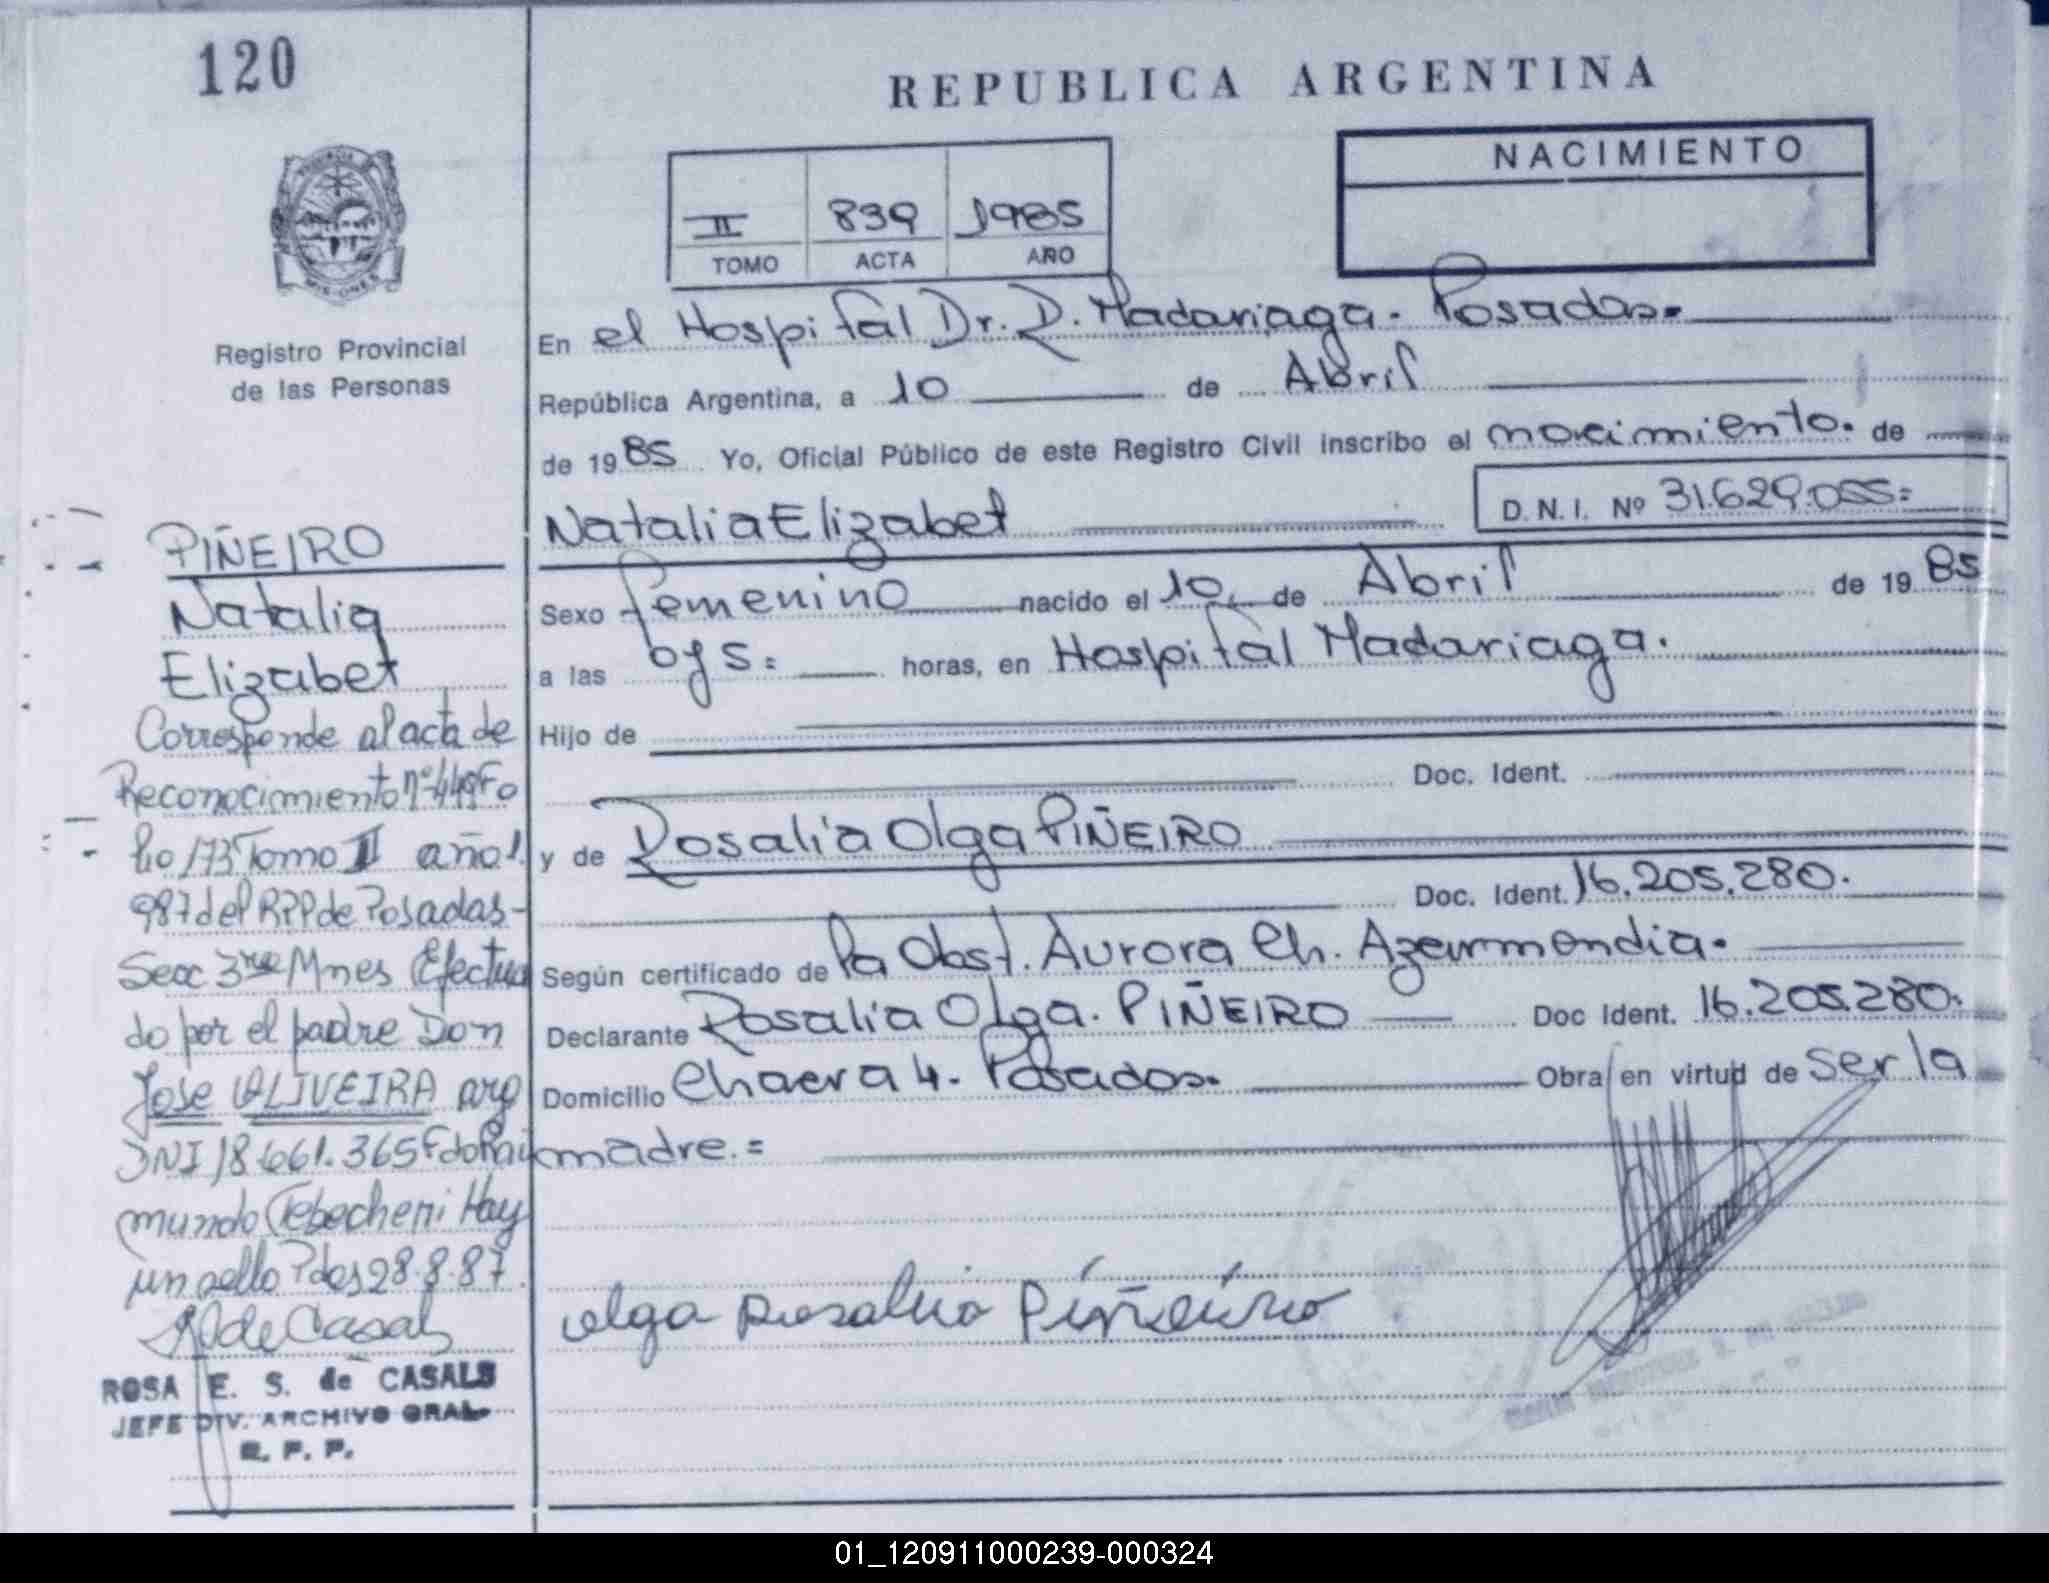 120
REPUBLICA ARGENTINA
II 839 1985
TOMO ACTA AÑO
NACIMIENTO
MISIONES
Registro Provincial
de las Personas
En el Hospital Dr. R. Madariaga. Posadas.
República Argentina, a 10 de Abril
de 1985 Yo, Oficial Público de este Registro Civil inscribo el nacimiento. de
Natalia Elizabet D.N.I. Nº 31.629.055=
Sexo femenino nacido el 10 de Abril de 1985
a las horas, en Hospital Madariaga.
Hijo de
Doc. Ident.
y de Rosalia Olga PIÑEIRO
Doc. Ident. 16.205.280.
Según certificado de la Obst. Aurora Ch.
Declarante Rosalia Olga. PIÑEIRO Doc Ident. 16.205.280.
Domicilio Chacra 4. Posadas. Obra en virtud de ser la
madre.=
Olga Rosalia Piñeiro
PIÑEIRO
Natalia
Elizabet
Corresponde al acta de
Reconocimiento nº 449 Fo
lio 173 Tomo II año 1.
987 del RPP de Posadas-
Secc 3ra Mnes Efectua
do por el padre Don
Jose OLIVEIRA arg
DNI 18.661.365 Fdo Rai
mundo Hay
un sello Pdas 28.8.87.
R de Casals
ROSA E. S. de CASALS
JEFE DIV. ARCHIVO GRAL.
R. P. P.
01_120911000239-000324